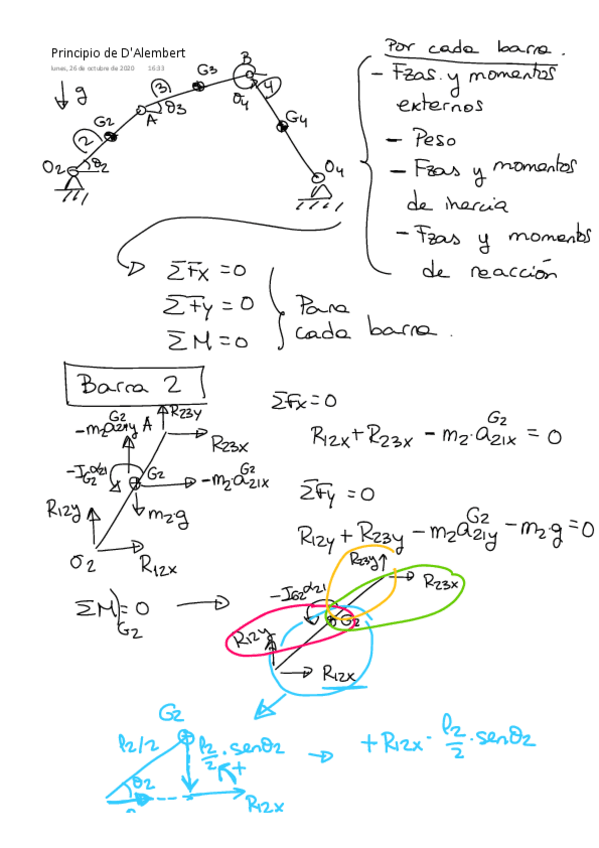 Principio de D'Alembert
lunes, 26 de octubre de 2020 16:33
Por cada barra.
- Fzas. y momentos
externos
- Peso
- Fzas y momentos
de inercia
- Fzas y momentos
de reacción
g
O2
θ2
2
G2
A
3
θ3
G3
B
θ4
4
G4
O4
ΣFx = 0
ΣFy = 0
ΣM = 0
Para
cada barra.
Barra 2
-m2 a21y G2
A
R23y
R23x
-IG2 α21
G2
-m2·a21x G2
m2·g
R12y
O2
R12x
ΣFx = 0
R12x + R23x - m2·a21x G2 = 0
ΣFy = 0
R12y + R23y - m2 a21y G2 - m2·g = 0
ΣM)G2 = 0
R23y
R23x
-IG2 α21
G2
R12y
R12x
G2
l2/2
l2/2 · senθ2
+
θ2
R12x
+ R12x · l2/2 · senθ2